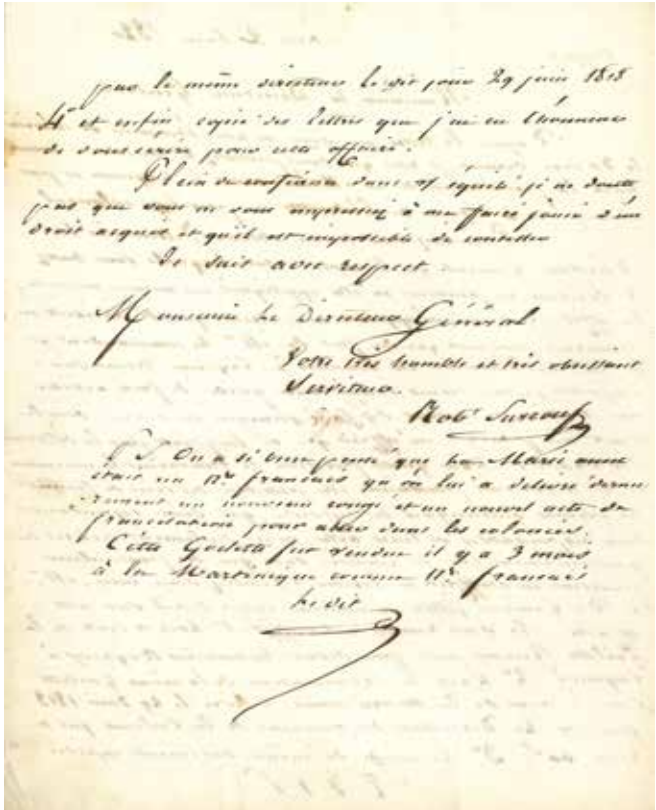 par le même directeur le dit jour 29 juin 1818
4° et enfin copie des lettres que j'ai eu l'honneur
de vous écrire pour cette affaire.
Plein de confiance dans équité je ne doute
pas que vous ne vous empressiez à me faire jouir d'un
droit acquis et qu'il est impossible de contester
Je suit avec respect.
Monsieur Le Directeur Général
Votre très humble et très obeissant
Serviteur.
Robt Sureau
P S. On a si bien pensé que La Marie anne
était un Nre francais qu'on lui a delivré
un nouveau congé et un nouvel acte de
francisation pour aller dans les colonies.
Cette Goelette fut vendue il y a 3 mois
à la Martinique comme Nre francais
Le dit